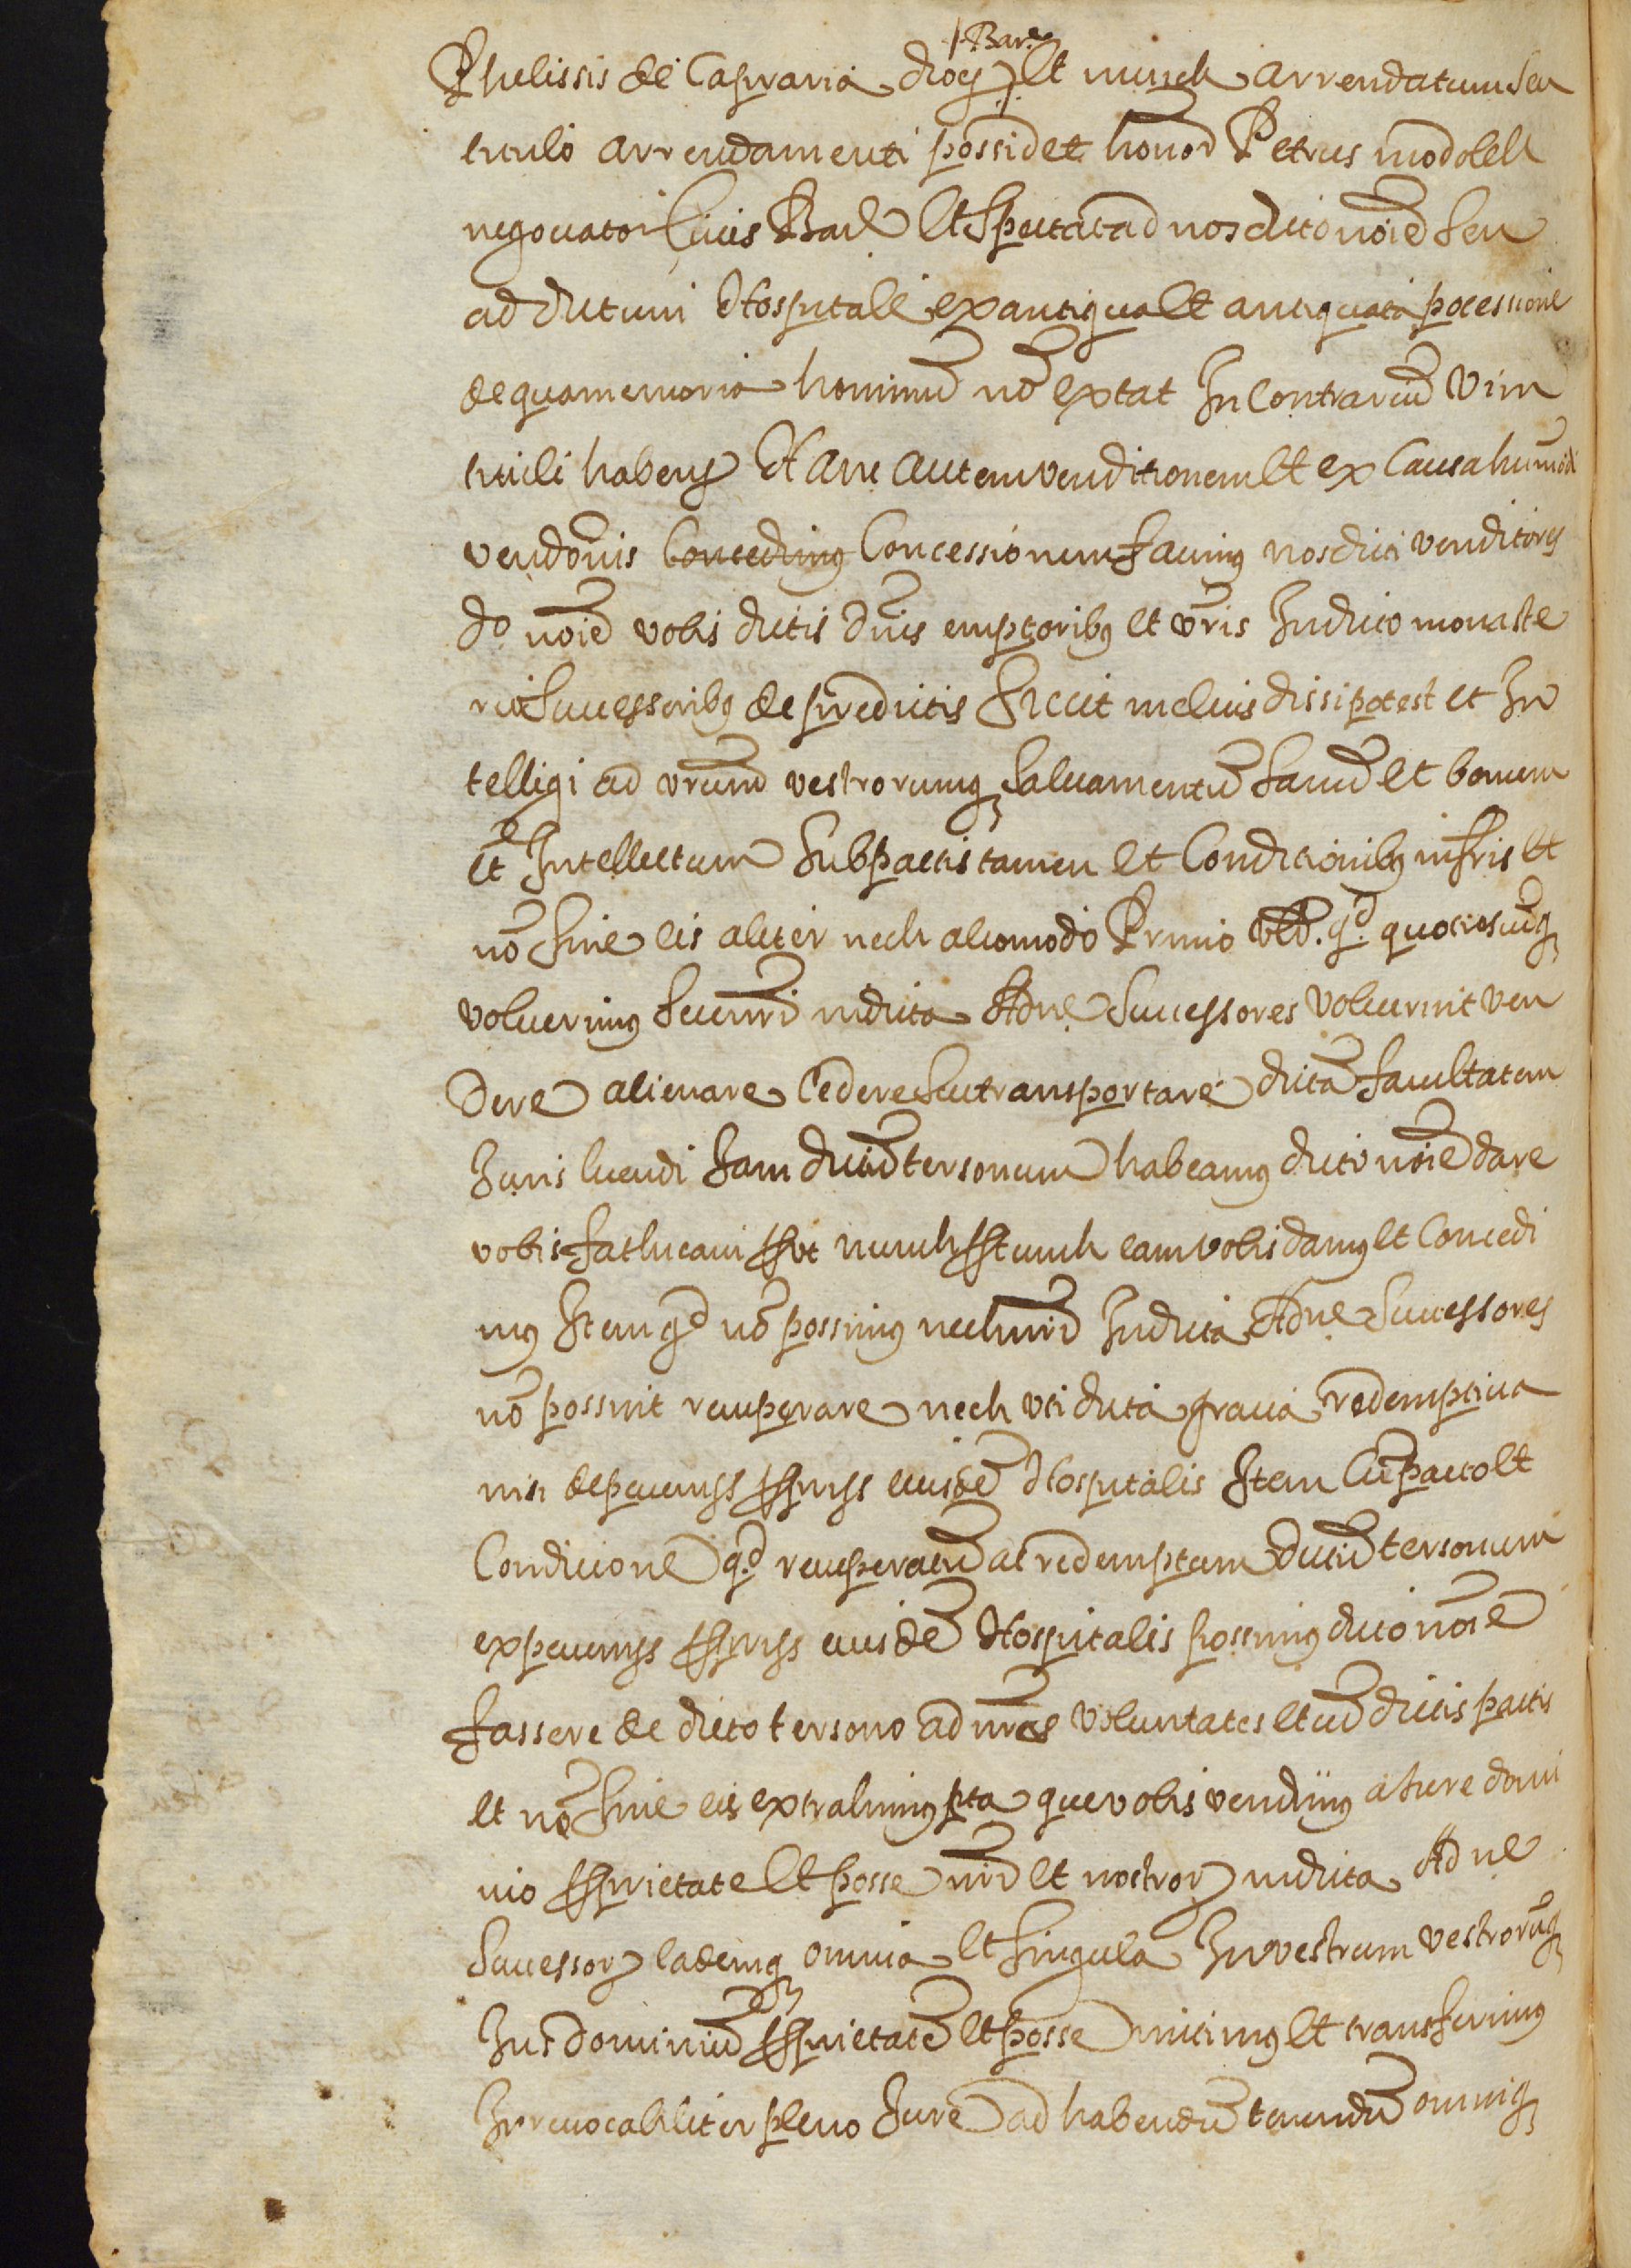 Barᵉ
Phelissis de Capraria diocs Et nunch arrendatum seu
titulo arrendamenti possidet honor Petrus modolell
negociator Civis Barᵉ Et Spectat ad nos dicto noiē Seu
ad dictum Hospitale ex antiqua Et antiquata pocessione
de qua memoria hominū nō extat In Contrariū Vim
tituli habens Hanc autem venditionem Et ex Causa humōi
vendōnis Concedimus Concessionem facimus nos dicti venditores
do noiē vobis dictis dnis emptoribus et vris In dicto monaste
rio Successoribus de predictis Sicut melius dissi potest et In
telligi ad vrum vestrorumq Salvamentū Sanū et bonum
Et Intellectum Sub pactis tamen et Conditionibus infris Et
nō Sine eis aliter nech alio modo Primo qd. quotiescūq
voluerimus Seu nri in dicta Adne Successores voluerint ven
dere alienare Cedere Seu transportare dictā facultatem
Juris luendi Jam dictū tersonum habeamus dicto noiē dare
vobis fathicam prout nunch pro tunch eam vobis damus et Concedi
mus Item qd nō possimus nech nri In dicta Adne Successores
nō possint recuperare nech uti dicta gracia redemptiva
nisi de pecuniss propriss eiusdē Hospitalis Item Cū pacto Et
Condicione qd recuperatū ac redemptum dictū tersonum
ex pecuniss propriss eiusdē Hospitalis possimus dicto noiē
fassere de dicto tersono ad nras voluntates Et cū dictis pactis
et nō Sine eis extrahimus pta que vobis vendimus a Jure domi
nio proprietate Et posse nri et nostror in dicta Adne
Successor eademq omnia et Singula In vestrum vestrorūq
Jus dominiū proprietatē et posse mitimus Et transferimus
Irrevocabiliter pleno Jure ad habendū tenendū omniq